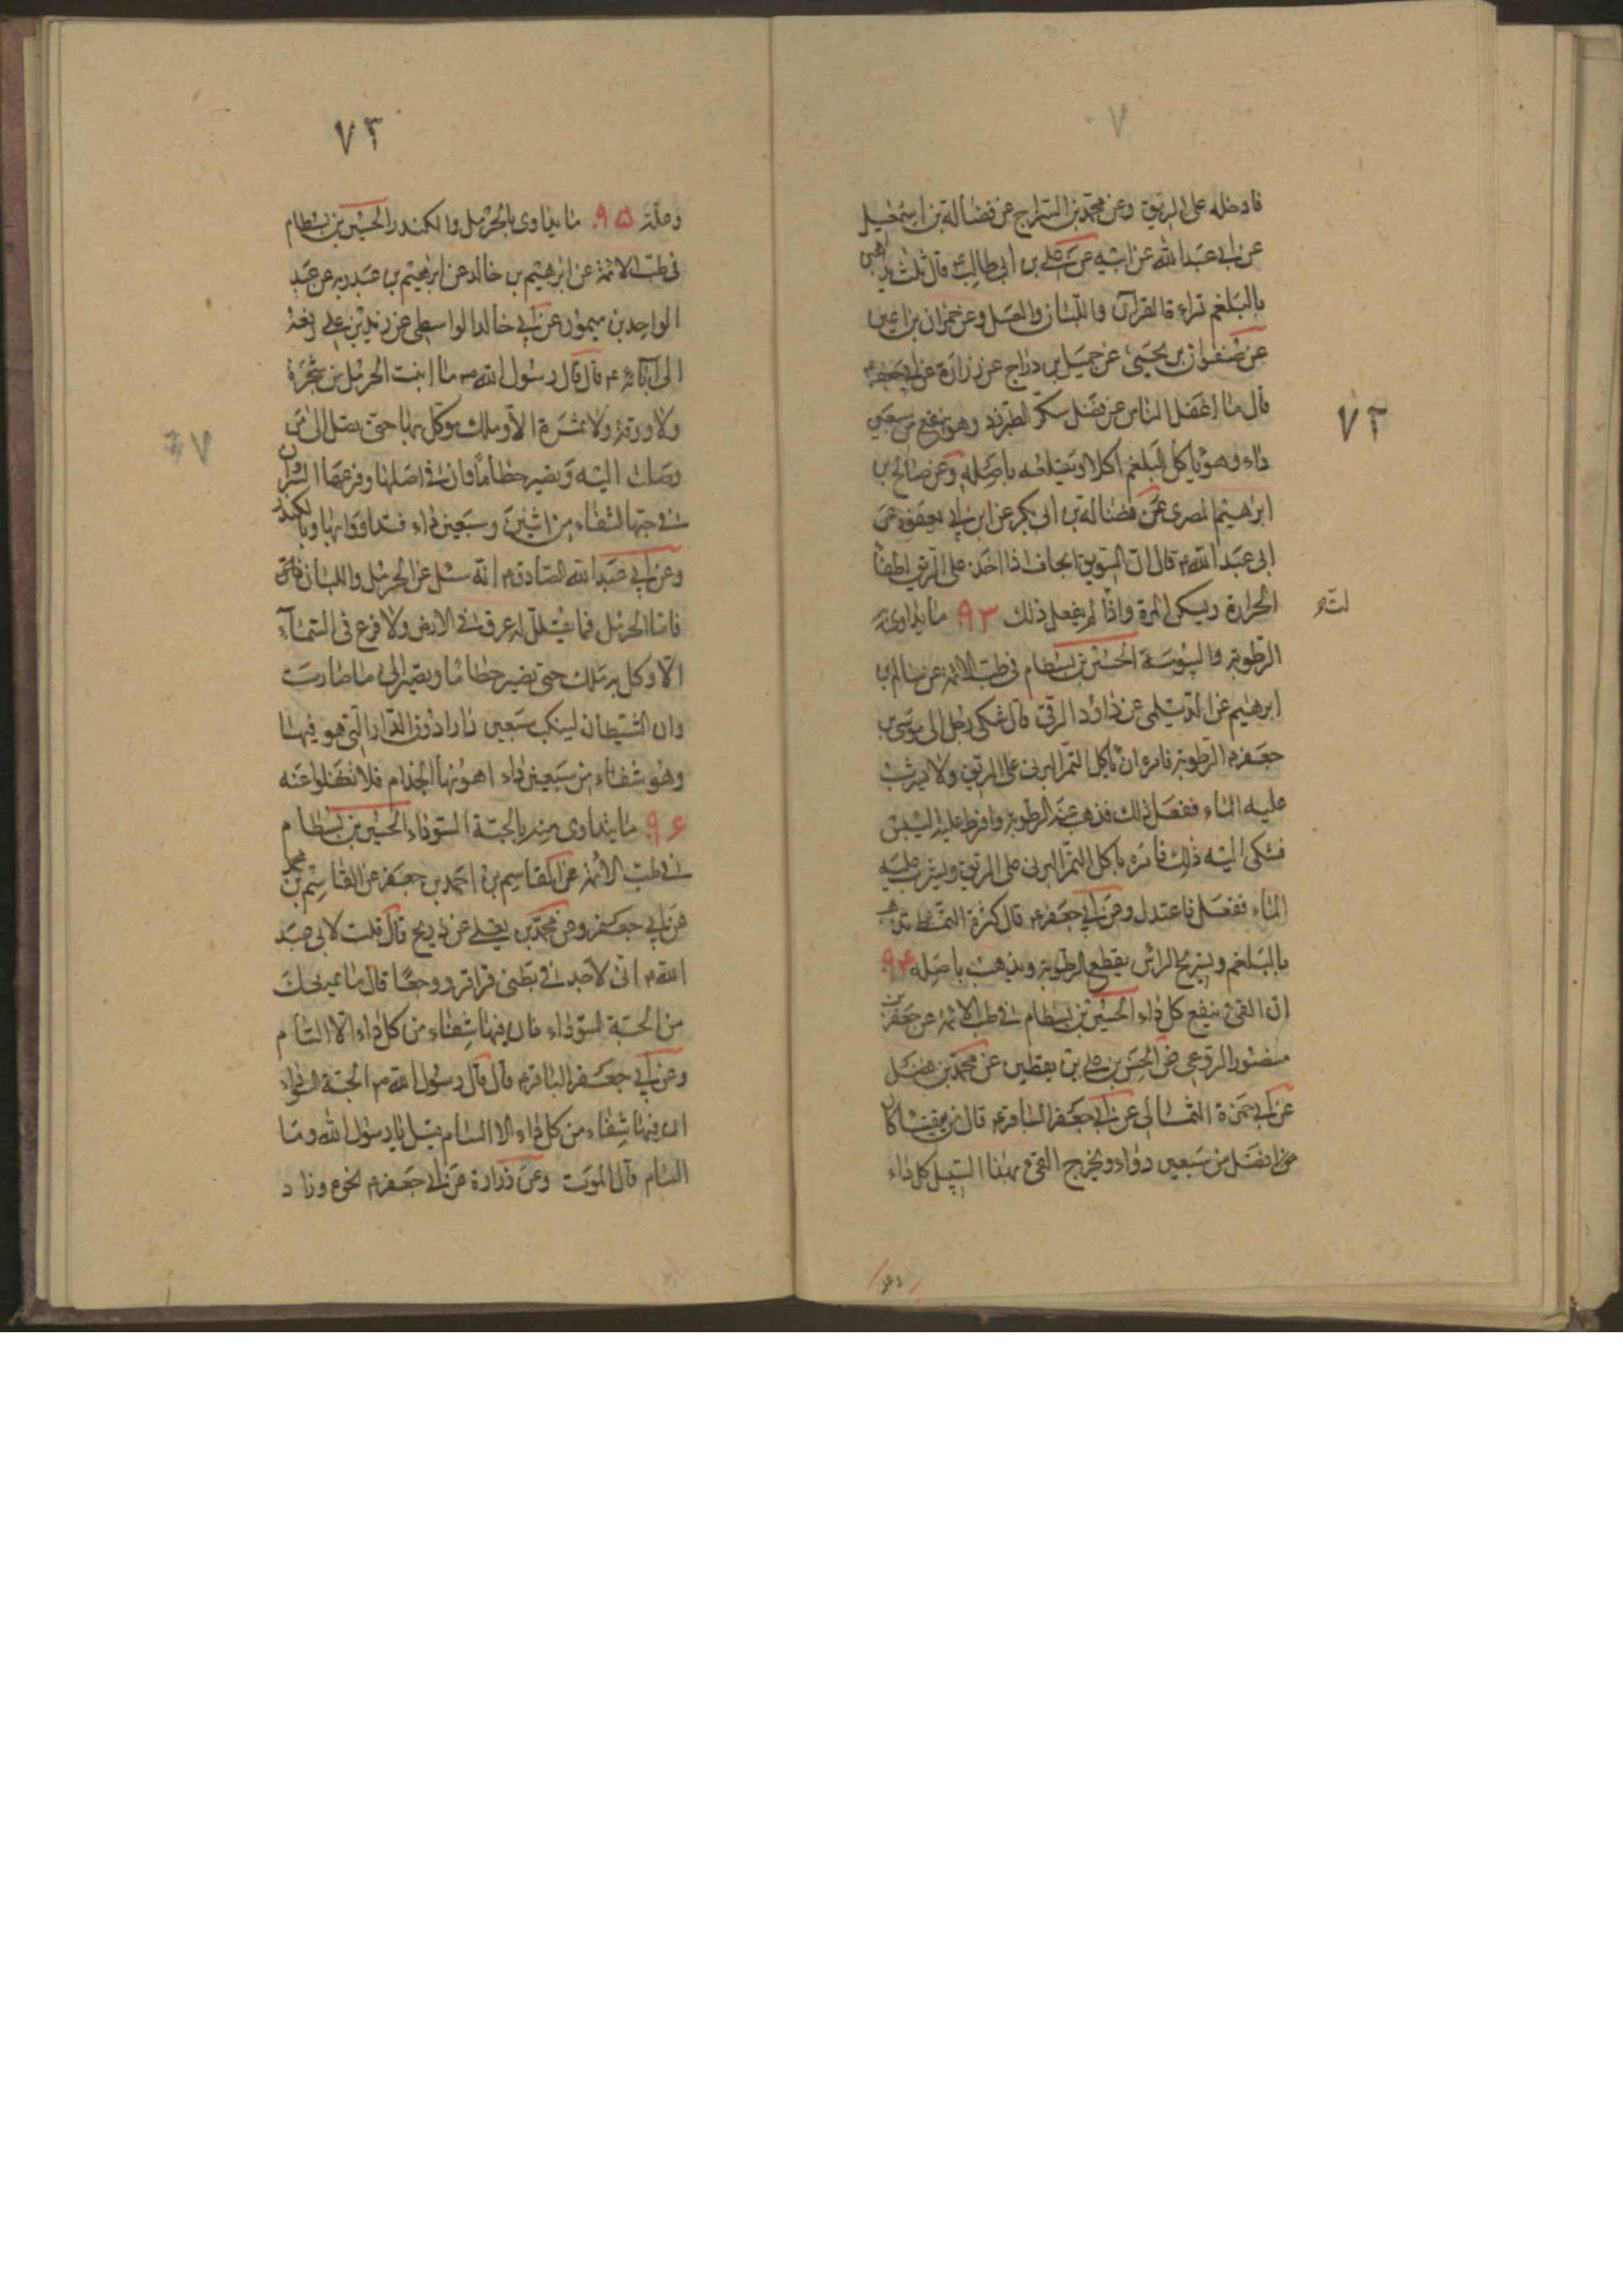 فادخله على الريق وعن محمد بن السراج عن فضالة بن اسمعيل
عن ابى عبد الله عن ابيه عن على بن ابى طالب ع قال ثلث يذهبن
بالبلغم قراءة القرآن واللبان والعسل وعن حمران بن اعين
عن صفوان بن يحيى عن جميل بن دراج عن زرارة عن ابى جعفر ع
قال ما اغفل الناس عن فضل سكر الطبرزد وهو ينفع من سبعين
داء وهو ياكل البلغم اكلا ويقلعه باصله وعن صالح بن
ابرهيم المصرى عن فضالة بن ابى بكر عن ابن ابى يعفور عن
ابى عبد الله ع قال ان السويق الجاف اذا اخذ على الريق اطفأ
الحرارة ويسكن المرة واذا لم يفعل ذلك ٩٣ ما يداوى به
لتّ ع
الرطوبة واليبوسة الحسين بن بسطام فى طب الائمة عن سالم بن
ابرهيم عن الديلمى عن داود الرقى قال شكى رجل الى موسى بن
جعفر ع الرطوبة فامره ان ياكل التمر البرنى على الريق ولا يشرب
عليه الماء ففعل ذلك فذهب عنه الرطوبة وافرط عليه اليبس
فشكى اليه ذلك فامره باكل التمر البرنى على الريق ويشرب عليه
الماء ففعل فاعتدل وعن ابى جعفر ع قال كثرة التمشط تذهب
بالبلغم وتسريح الراس يقطع الرطوبة ويذهب باصله ٩٤
ان القئ ينفع كل داء الحسين بن بسطام فى طب الائمة عن جعفر بن
منصور الردعى عن الحسن بن على بن يقطين عن محمد بن فضل
عن ابى حمزة الثمالى عن ابى جعفر الباقر ع قال من يقيئا كان
افضل من سبعين دواء ويخرج القئ بهذا السبيل كل داء
وعلة
٧٢
٧٣
وعلة ٩٥ ما يداوى بالحرمل والكندر الحسين بن بسطام
فى طب الائمة عن ابرهيم بن خالد عن ابرهيم بن عبد ربه عن عبد
الواحد بن ميمون عن ابى خالد الواسطى عن زيد بن على رفعه
الى آبائه ع قال قال رسول الله ص ما انبت الحرمل من شجرة
ولا ورقة ولا ثمرة الا وملك موكل بها حتى يصل الى من
وصلت اليه وتصير حطاما وان فى اصلها وفرعها نشرة وان
فى حبها الشفاء من اثنين وسبعين داء فتداووا بها وبالكندر
وعن ابى عبد الله الصادق ع انه سئل عن الحرمل واللبان فقال
فاما الحرمل فما يقلل له عرق فى الارض ولا فرع فى السماء
الا وكل به ملك حتى يصير حطاما ويصير الى ما صارت
وان الشيطان ليتنكب سبعين دارا دون الدار التى هو فيها
وهو شفاء من سبعين داء اهونها الجذام فلا تغفلوا عنه
٩٦ ما يتداوى منه بالحبة السوداء الحسين بن بسطام
فى طب الائمة عن القاسم بن احمد بن جعفر عن القاسم بن محمد
عن ابى جعفر وعن محمد بن يعلى عن ذريح قال قلت لابى عبد
الله ع انى لاجد فى بطنى قراقر ووجعا قال ما يمنعك
من الحبة السوداء فان فيها شفاء من كل داء الا السام
وعن ابى جعفر الباقر ع قال قال رسول الله ص الحبة السوداء
ان فيها شفاء من كل داء الا السام فقيل يا رسول الله وما
السام قال الموت وعن زرارة عن ابى جعفر ع نحوه وزاد